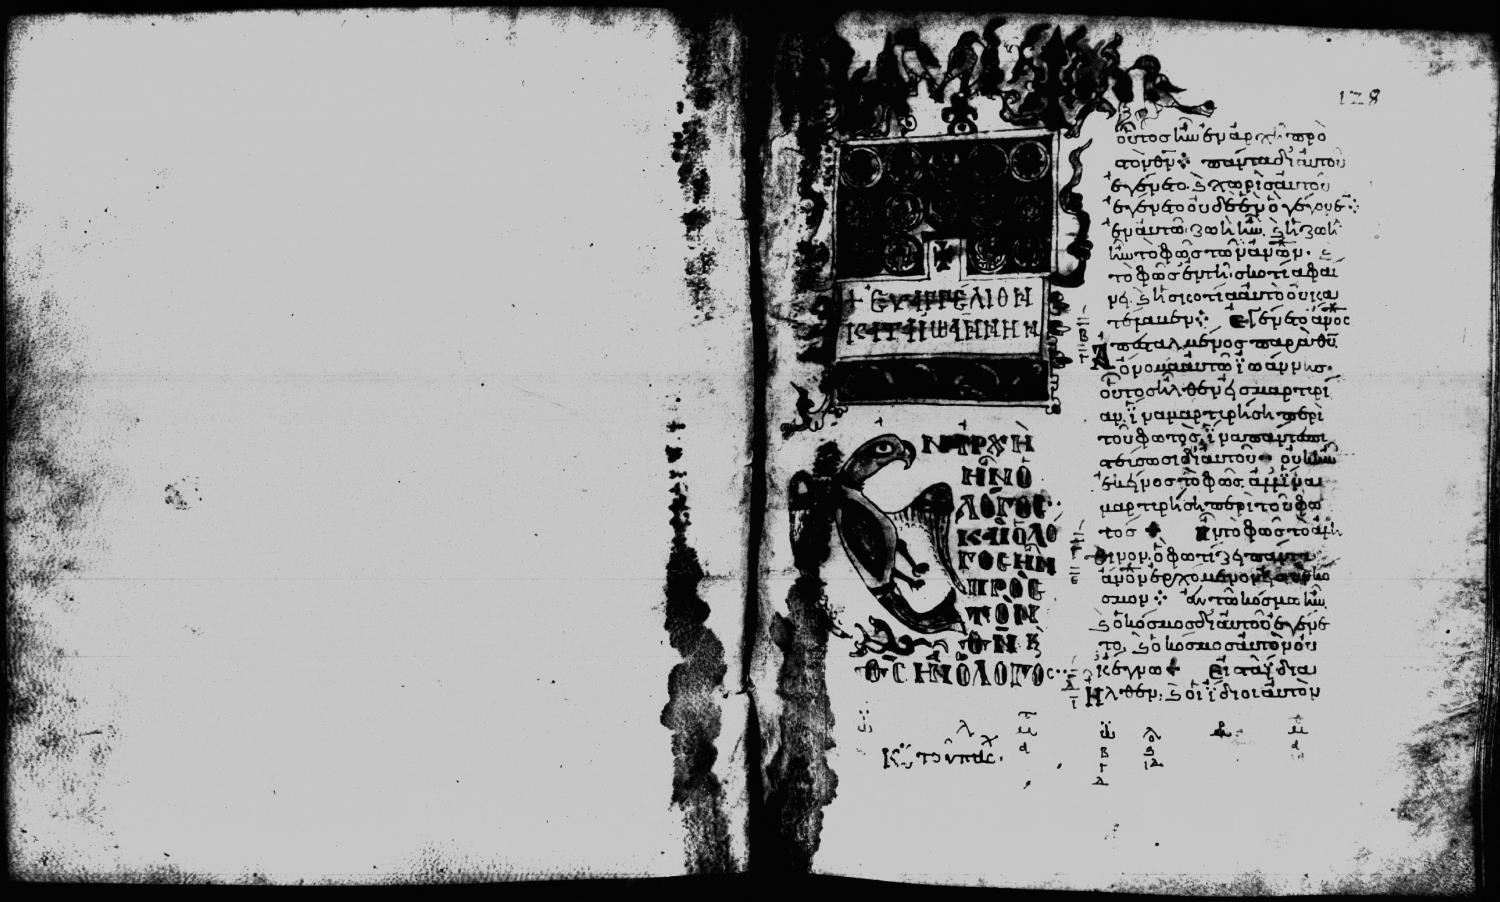 128
+ ΕΥΑΓΓΕΛΙΟΝ
ΚΑΤΑ ΙΩΑΝΝΗΝ
ΝΑΡΧΗ
ΗΝ Ὁ
ΛΌΓΟΣ
Κ Ὁ ΛΌ
ΓΟΣ ΗΝ
ΠΡΟΣ
ΤΟΝ
Θ̅Ν̅ Κ
Θ̅Σ̅ ΗΝ Ὁ ΛΟΓΟ
οὗτος ἦν ἐν ἀρχῆ πρὸ
τὸν θ̅ν̅ πάντα δι αὐτοῦ
ἐγένετο ϗ χωρὶς αὐτοῦ
ἐγένετο οὐδὲ ἓν ὃ γέγονε
ἐν αὐτῶ ζωὴ ἦν ϗ ἡ ζωὴ
ἦν τὸ φῶς τῶν α̅ν̅ω̅ν̅ ϗ
τὸ φῶς ἐν τῆ σκοτία φαί
νει ϗ ἡ σκοτία αὐτὸ οὐ κα
τέλαβεν ἐγένετο α̅ν̅ο̅ς̅
ἀπεσταλμένος παρὰ θ̅υ̅
ὄνομα αὐτῶ ἰωάννης
οὗτος ἦλθεν εἰς μαρτυρί
αν ἵνα μαρτυρήση περὶ
τοῦ φωτὸς ἵνα πάντες πι
στεύσωσι δι αὐτοῦ οὐκ ἦν
ἐκεῖνος τὸ φῶς ἀλλ ἵνα
μαρτυρήση περὶ τοῦ φω
τός ἦν τὸ φῶς τὸ ἀλη
θινόν ὃ φωτίζει πάντα
α̅ν̅ο̅ν̅ ἐρχόμενον εἰς τὸν κό
σμον ἐν τῶ κόσμω ἦν
ϗ ὁ κόσμος δι αὐτοῦ ἐγένε
το ϗ ὁ κόσμος αὐτὸν οὐ
κ ἔγνω εἰς τὰ ἴδια
ἦλθεν ϗ οἱ ἴδιοι αὐτὸν